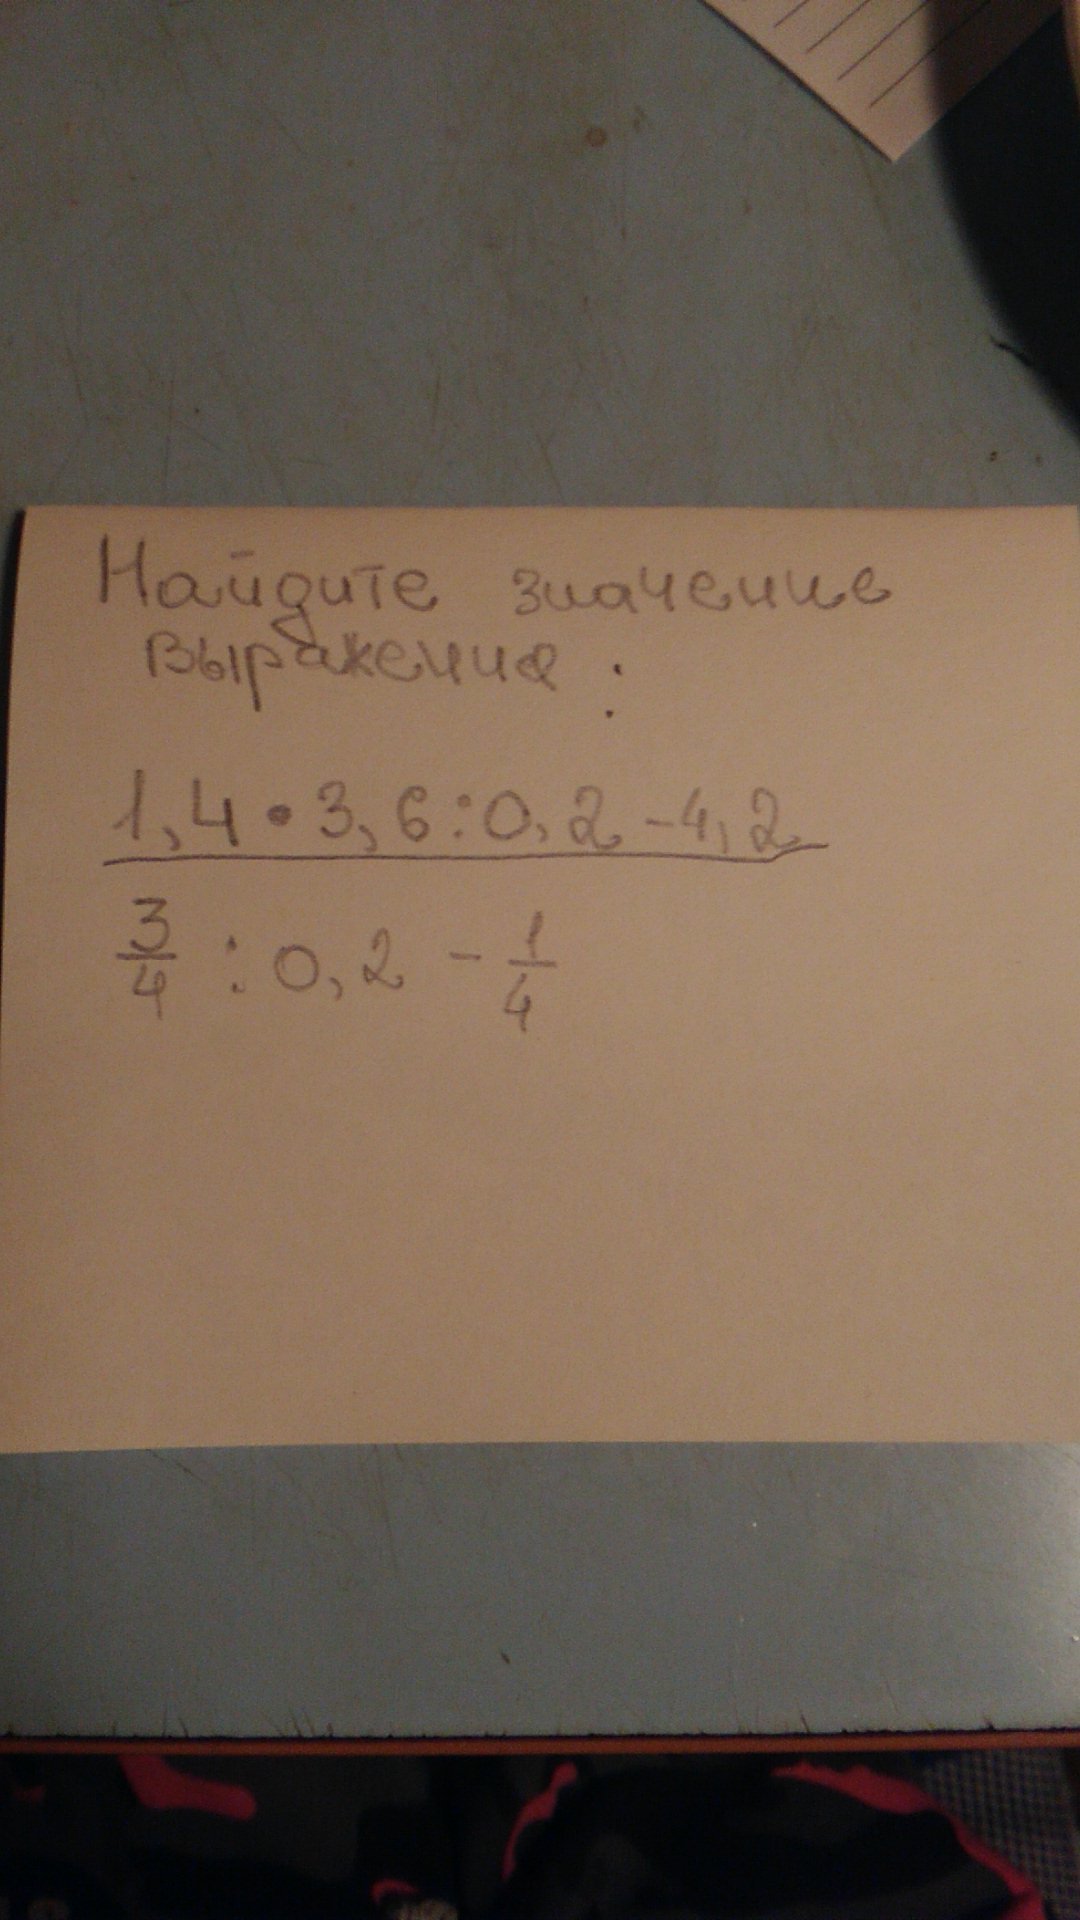 Найдите значение
выражения :
1,4 • 3,6 : 0,2 - 4,2
3/4 : 0,2 - 1/4